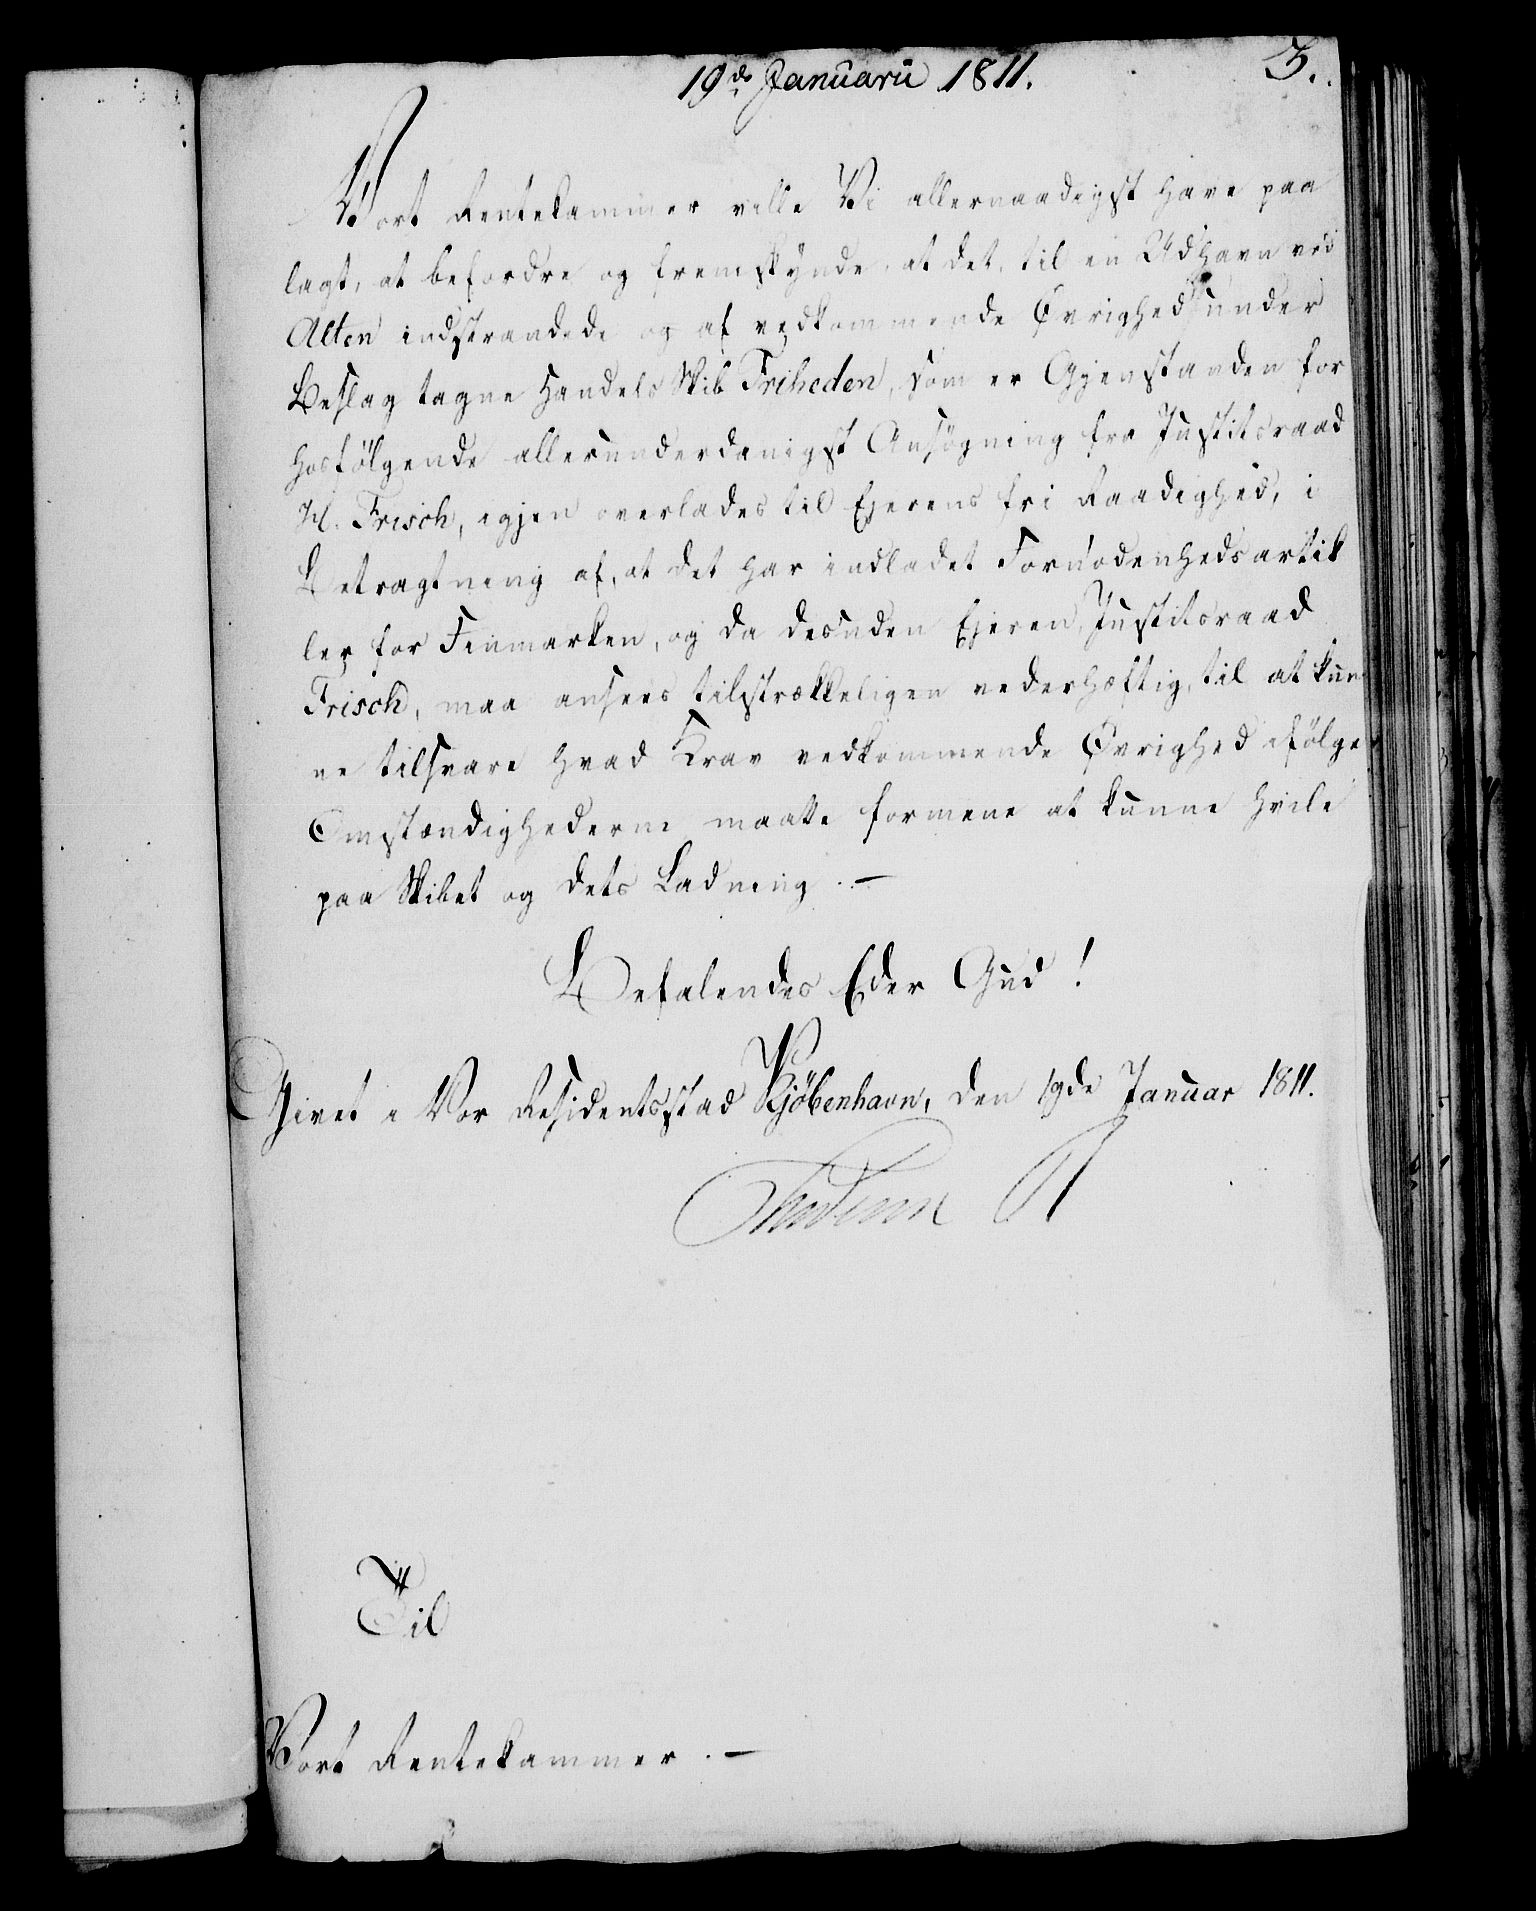 19de Januarii 1811.
3.
Vort Rentekammer ville Vi allernaadigst have paa
lagt, at befordre og fremskynde, at det, til en Udhavn ved
Alten indstrandede og af vedkommende Øvrighed under
Beslag tagne Handels Skib Friheden, som er Gjenstanden for
hosfölgende allerunderdanigst Ansögning fra Justitsraad
H. Frisch, igjen overlades til Ejerens fri Raadighed, i
Betragtning af, at det har indladet Fornödenhedsartik
ler for Finmarken, og da desuden Ejeren, Justitsraad
Frisch, maa ansees tilstrækkeligen vederhæftig, til at kun
ne tilsvare hvad Krav vedkommende Øvrighed ifölge
Omstændighederne maatte formene at kunne hvile
paa Skibet og dets Ladning. —
Befalendes Eder Gud!
Givet i Vor Residentsstad Kjöbenhavn, den 19de Januar 1811.
Frederik R
Til
Vort Rentekammer. —